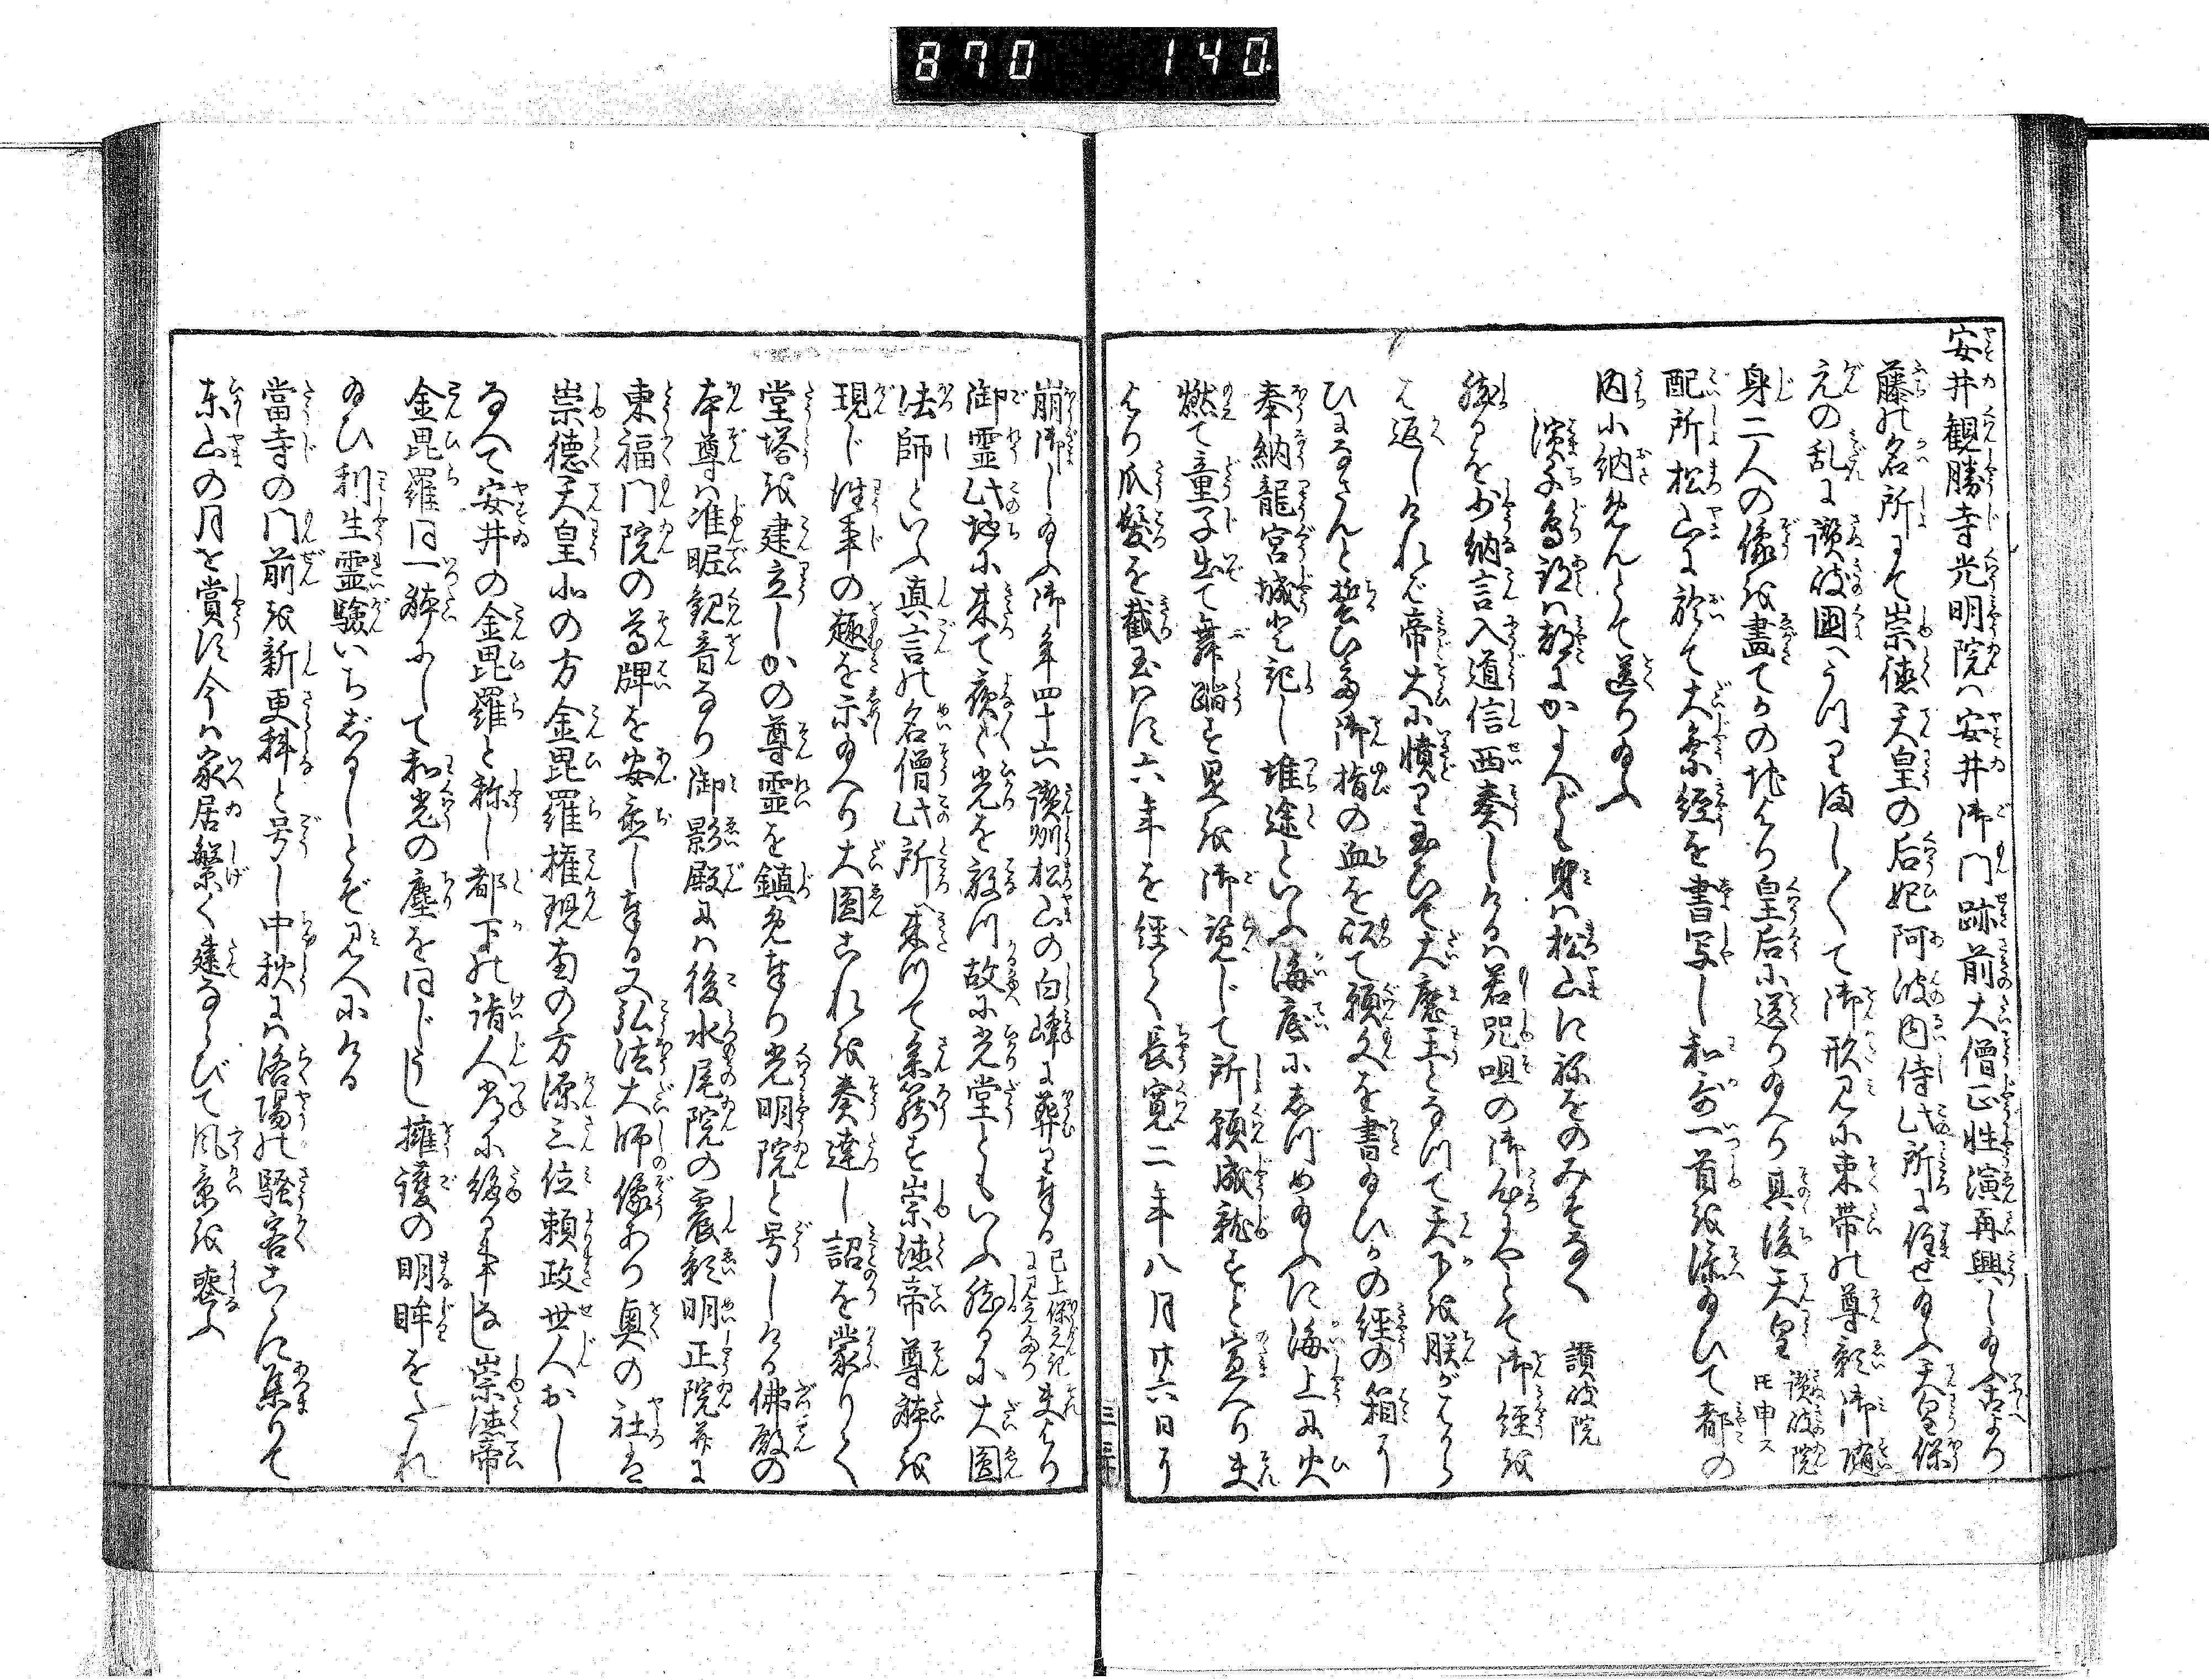 870 140
安井観勝寺光明院は安井御門跡前大僧正性演再興し給ふ古より
藤の名所にて崇徳天皇の后妃阿波内侍此所に住せ給ふ天皇保
元の乱に讃岐國へうつりましまして御形見に束帯の尊影御随
身二人の像を畫てかの地より皇后に送り給へり其後天皇讃岐院トモ申ス
配所松山に於て大乗経を書写し和哥一首を添給ひて都の
内に納めんとて送り給ふ
濱千鳥跡は都にかよへども身は松山に音をのみぞなく 讃岐院
然るを少納言入道信西奏しけるは若咒咀の御心にやとて御経を
ば返しければ帝大に憤り玉ひて大魔王となつて天下を朕がはから
ひになさんと誓ひて御指の血を以て願文を書給ひかの経の箱に
奉納龍宮城と記し堆途といふ海底にしづめ給ふに海上に火
燃て童子出て舞踏す是を御覧じて所願成就すと宣へり夫
より爪髪を截玉はず六年を経て長寛二年八月廿六日に
三 三十
崩御し給ふ御年四十六讃州松山の白峰に葬り奉る已上保元記に見えたり夫より
御霊此地に来て夜々光を放つ故に光堂ともいふ然るに大圓
法師といふ真言の名僧此所へ来つて参籠す崇徳帝尊躰を
現じ往事の趣を示給へり大圓これを奏達し詔を蒙りて
堂塔を建立しかの尊霊を鎮め奉り光明院と号しける佛殿の
本尊は准胝観音なり御影殿には後水尾院の震影明正院并に
東福門院の尊牌を安置し奉る又弘法大師像あり奥の社は
崇徳天皇北の方金毘羅権現南の方源三位頼政世人おし
なべて安井の金毘羅と称し都下の詣人常に絶る事なし崇徳帝
金毘羅同一躰にして和光の塵を同じうし擁護の明眸をたれ
給ひ利生霊験いちじるしとぞ見へにける
當寺の門前を新更科と号し中秋には洛陽の騒客こゝに集りて
東山の月を賞ず今は家居繁く建ならびて風景を喪ふ